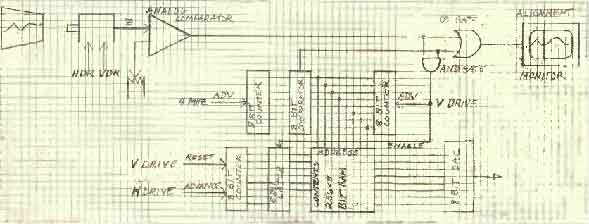 ANALOG
COMPARATOR
OR GATE
ALIGNMENT
MONITOR
HDR VDR
AND GATE
4 MHZ
ADV
8 BIT COUNTER
8 BIT COMPARATOR
8 BIT COUNTER
ADV
V DRIVE
ENABLE
ADDRESS
V DRIVE
RESET
H DRIVE
ADVANCE
8 BIT COUNTER
CONTENTS
256 x 8
BIT RAM
8 BIT DAC